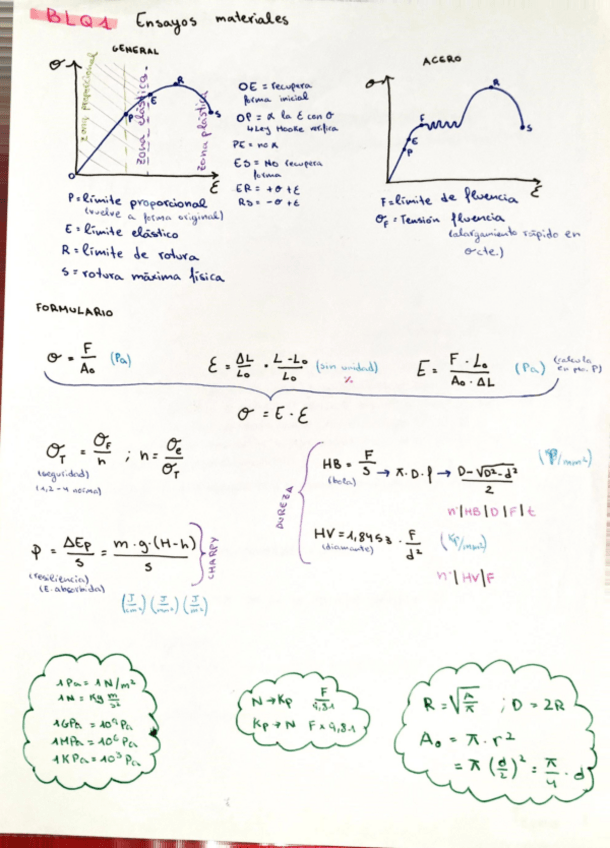 BLQ1 Ensayos materiales
GENERAL
σ
zona proporcional
zona elástica
zona plástica
O
P
E
R
S
ε
OE = recupera
forma inicial
OP = α la ε con σ
↳ Ley Hooke verifica
PE = no α
ES = NO recupera
forma
ER = +σ +ε
RS = -σ +ε
P = límite proporcional
(vuelve a forma original)
E = límite elástico
R = límite de rotura
S = rotura máxima física
ACERO
σ
P
E
F
R
S
ε
F = límite de fluencia
σF = Tensión fluencia
(alargamiento rápido en
σ cte.)
FORMULARIO
σ = F/A₀ (Pa)
ε = ΔL/L₀ · L-L₀/L₀ (sin unidad)
%
E = F·L₀/A₀·ΔL (Pa) (calcula
en P)
σ = E·ε
σT = σF/n ; n = σe/σT
(seguridad)
(1,2-4 norma)
DUREZA
HB = F/S → π·D·f → D-√D²-d²/2 (KP/mm²)
(bola)
n|HB|D|F|t
HV = 1,8453 · F/d² (KP/mm²)
(diamante)
n|HV|F
ρ = ΔEp/S = m·g·(H-h)/S
(resiliencia)
(E. absorbida)
CHARPY
(J/cm²) (J/mm²) (J/m²)
1Pa = 1N/m²
1N = Kg m/s²
1GPa = 10⁹Pa
1MPa = 10⁶Pa
1KPa = 10³Pa
N → Kp F/9,81
Kp → N F×9,81
R = √A/π ; D = 2R
A₀ = π·r²
= π(d/2)² = π/4 · d